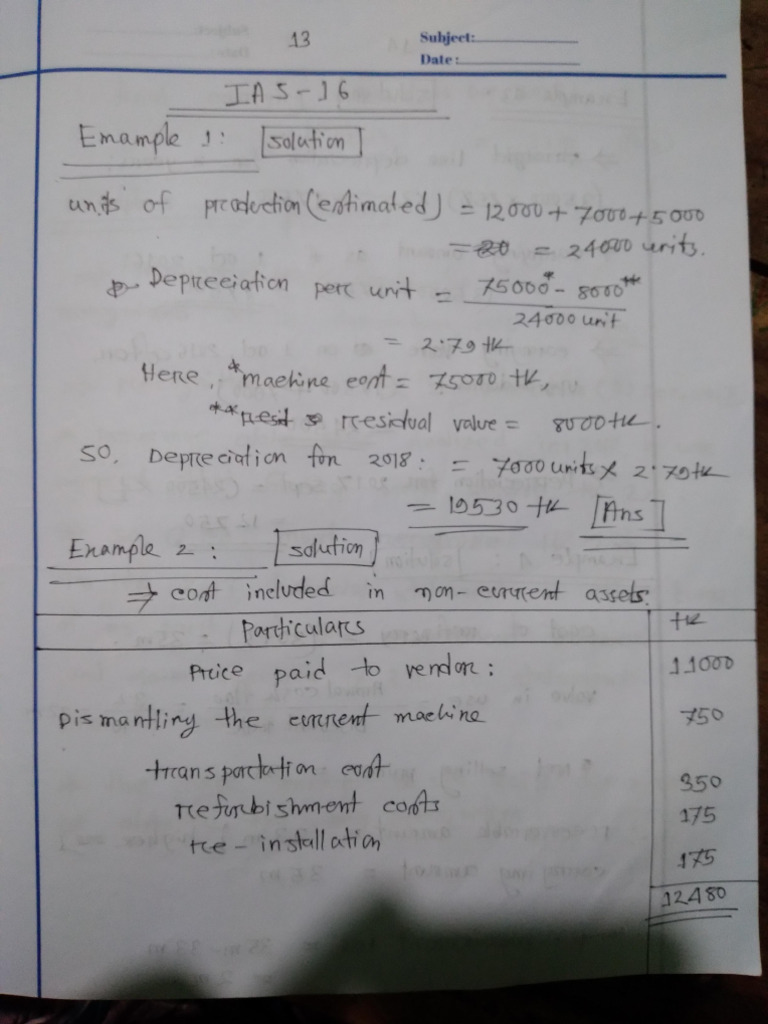 13
Subject:
Date:
IAS-16
Emample 1: [solution]
units of production (estimated) = 12000 + 7000 + 5000
= 20 = 24000 units.
Depreciation per unit = 75000* - 8000**
24000 unit
= 2.79 tk
Here, *machine cost = 75000 tk,
**resid residual value = 8000 tk.
SO, Depreciation for 2018: = 7000 units X 2.79 tk
= 19530 tk [Ans]
Example 2: [solution]
⇒ cost included in non-current assets.
Particulars tk
Price paid to vendor: 11000
Dismantling the current machine 750
transportation cost 350
refurbishment costs 175
re-installation 175
12480